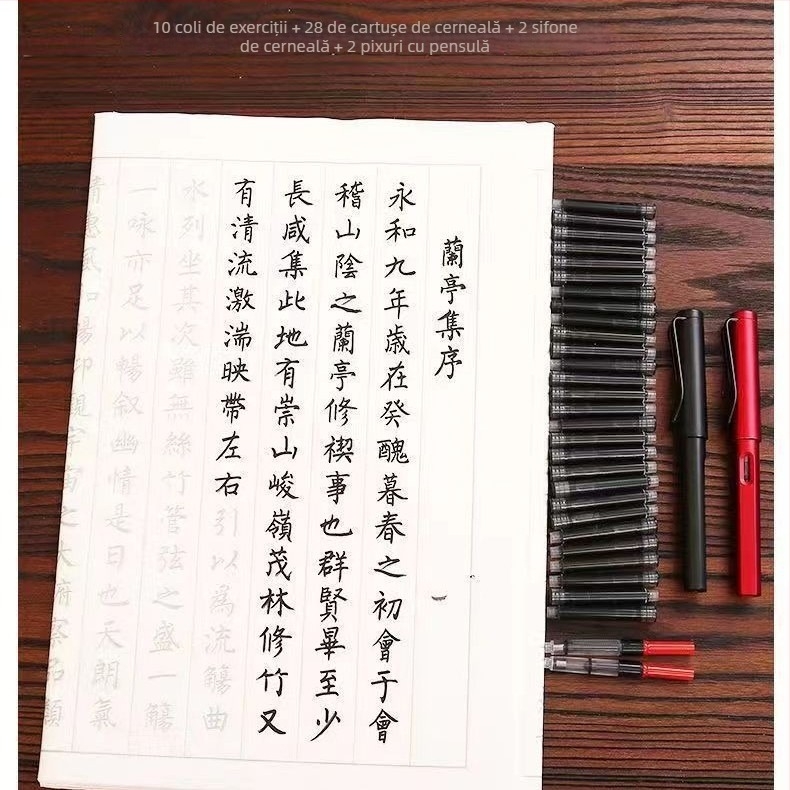 10 coli de exerciții + 28 de cartușe de cerneală + 2 sifone
de cerneală + 2 pixuri cu pensulă
蘭亭集序
永和九年歲在癸醜暮春之初會于會
稽山陰之蘭亭修禊事也群賢畢至少
長咸集此地有崇山峻嶺茂林修竹又
有清流激湍映帶左右引以為流觴曲
水列坐其次雖無絲竹管弦之盛一觴
一咏亦足以暢敘幽情是日也天朗氣
清惠風和暢仰觀宇宙之大俯察品類